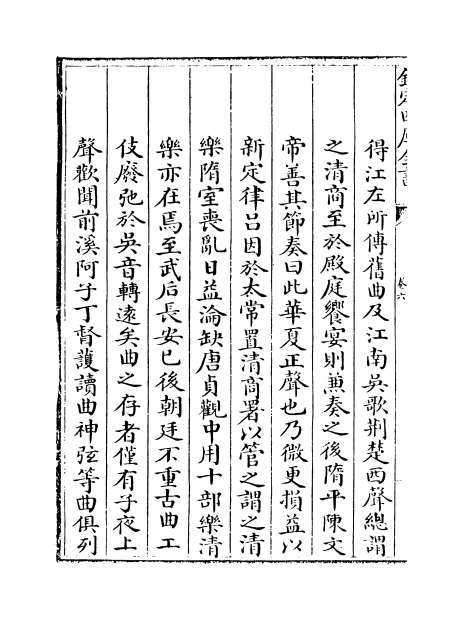 欽定四庫全書
卷六
得江左所傳舊曲及江南吳歌荆楚西聲總謂
之清商至於殿庭饗宴則兼奏之後隋平陳文
帝善其節奏曰此華夏正聲也乃微更損益以
新定律吕因於太常置清商署以管之謂之清
樂隋室喪亂日益淪缺唐貞觀中用十部樂清
樂亦在焉至武后長安已後朝廷不重古曲工
伎廢弛於吳音轉逺矣曲之存者僅有子夜上
聲歡聞前溪阿子丁督䕶讀曲神弦等曲俱列